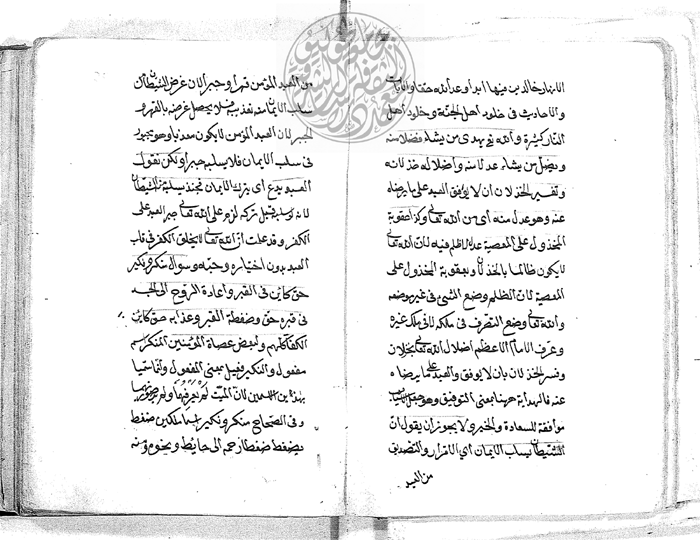 الانهار خالدين فيها ابدا وعد الله حقا والآيات
والاحاديث في خلود اهل الجنة وخلود اهل
النار كثيرة والله تع يهدي من يشاء فضلا منه
ويضل من يشاء عدلا منه واضلاله خذلانه
وتفسير الخذلان ان لا يوفق العبد على ما يرضاه
عنه وهو عدل منه اي من الله تعالى وكذا عقوبة
المخذول على المعصية عدلا لا ظلم فيه لان الله تعالى
لا يكون ظالما بالخذلان وبعقوبة المخذول على
المعصية لان الظلم وضع الشيء في غير موضعه
والله تعالى وضع التصرف في ملكه لا في ملك غيره
وعرف الامام الاعظم اضلال الله تعالى بخذلان
وفسر الخذلان بان لا يوفق العبد على ما يرضاه
عنه فالهداية ههنا بمعنى التوفيق وهو جعل الاسباب
موافقة للسعادة والخير ولا يجوز ان يقول ان
الشيطان يسلب الايمان اي الاقرار والتصديق
من العبد
من العبد المؤمن قهرا وجبرا لان غرض الشيطان
سلب الايمان منه فلا يحصل غرضه بالقهر و
الجبر لان العبد المؤمن لا يكون معذبا وهو مجبور
في سلب الايمان فلا يسلبه جبرا ولكن نقول
العبد يدع اي يترك الايمان فحينئذ يسلبه منه الشيطان
لانه لو سلبه قبل تركه لزم على الله تعالى جبر العبد على
الكفر وقد علمت ان الله تعالى لا يخلق الكفر في قلب
العبد بدون اختياره وحبه وسوال منكر ونكير
حق كاين في القبر واعادة الروح الى الجسد
في قبره حق وضغطة القبر وعذابه حق كاين
للكفار كلهم ولبعض عصاة المؤمنين المنكر اسم
مفعول والنكير فعيل بمعنى المفعول وانما سميا
بهذين الاسمين لان الميت لم يعرفهما ولم ير صورتهما
وفي الصحاح منكر ونكير اسما ملكين ضغط
يضغط ضغطا زحمه الى حايط ونحوه ومنه